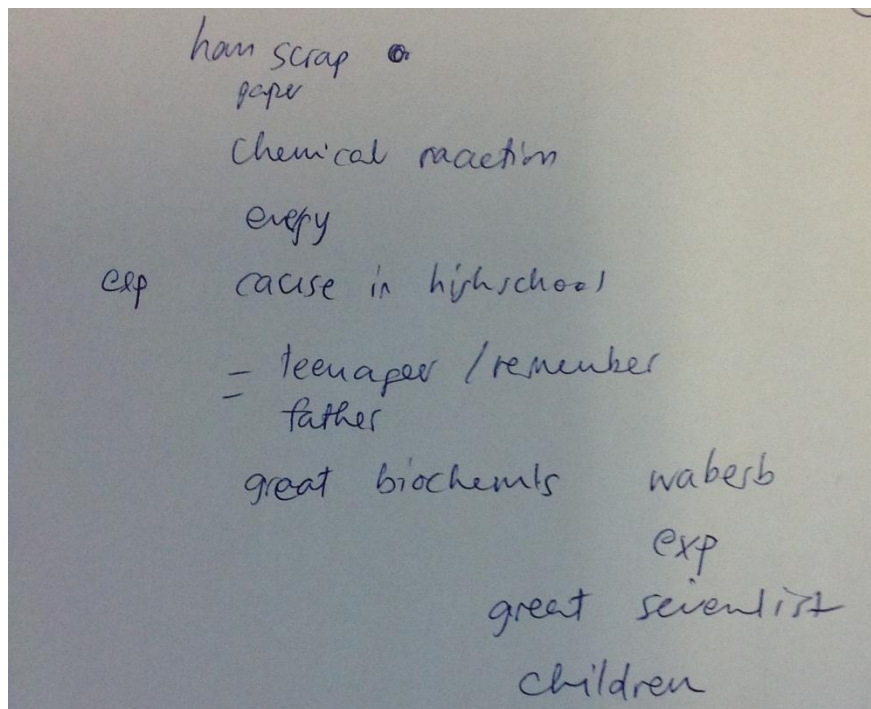 scrap
paper
chemical reaction
exp cause in highschool
= teenager / remember
father
great biochemis
exp
great
children